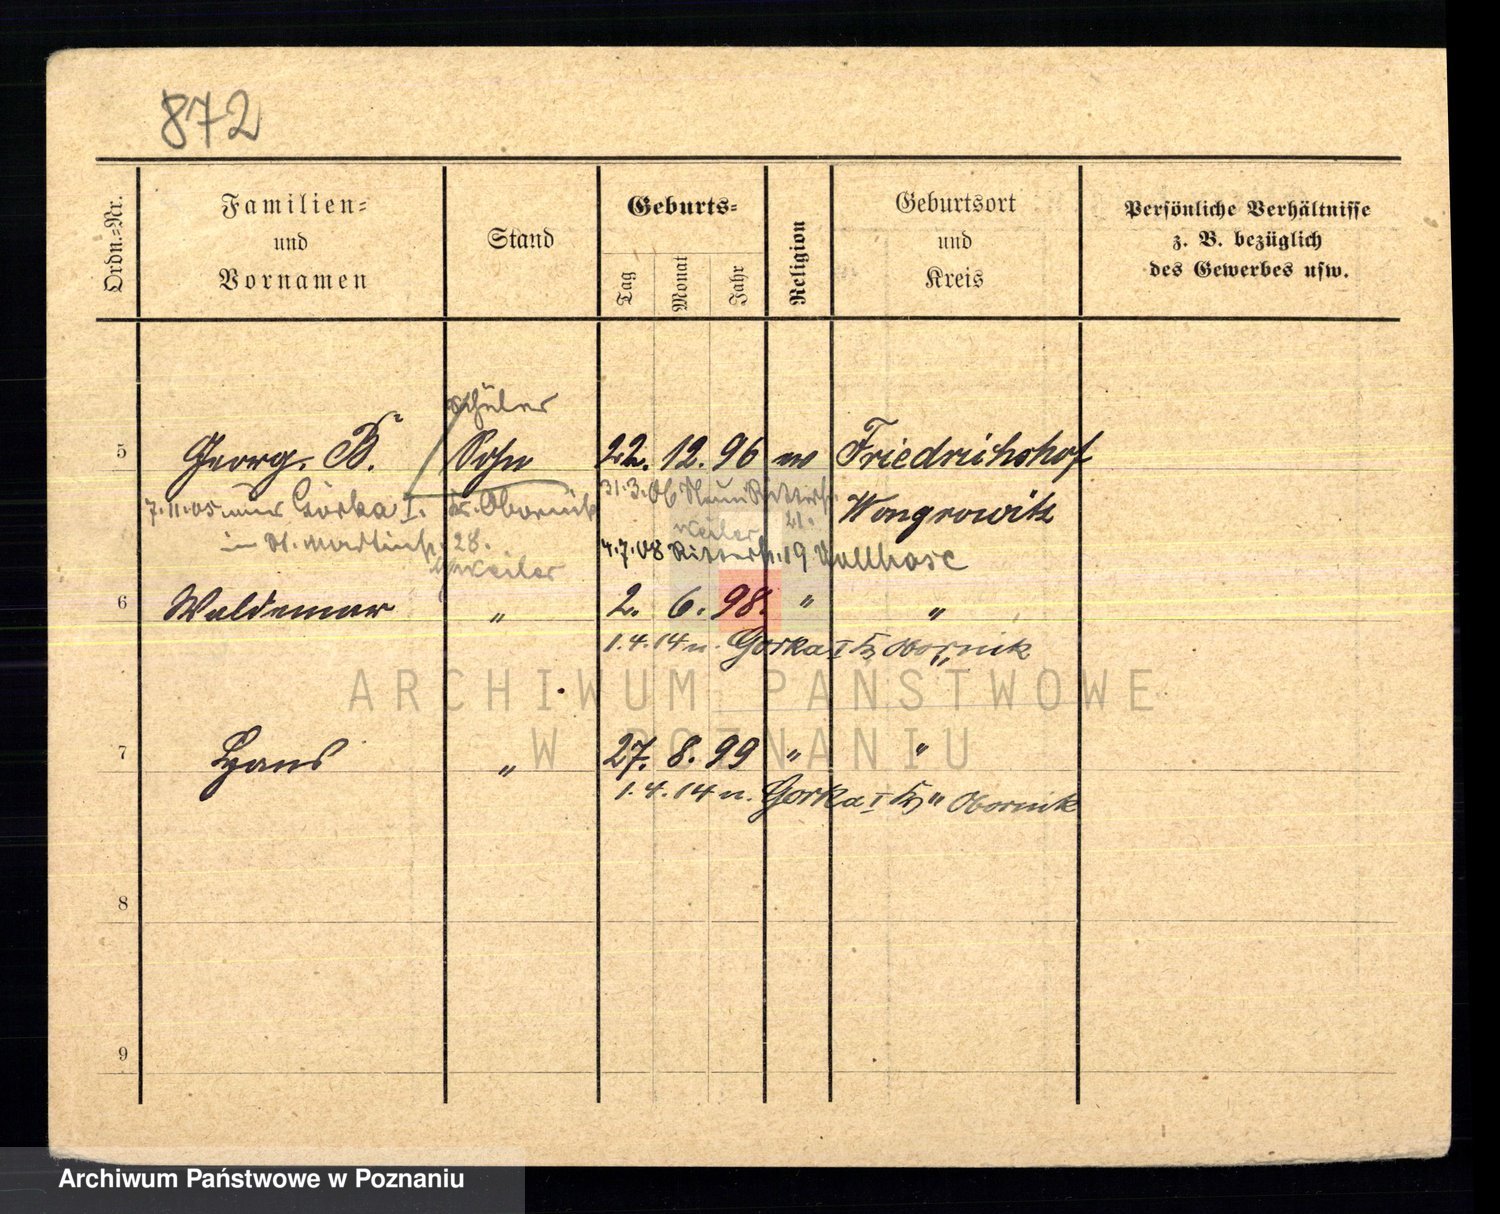 872
Ordn.-Nr.
Familien-
und
Vornamen
Stand
Geburts-
Tag
Monat
Jahr
Religion
Geburtsort
und
Kreis
Persönliche Verhältnisse
z. B. bezüglich
des Gewerbes usw.
Schüler
5 Georg. B. Sohn 22. 12. 96 Friedrichshof
7.11.05 Górka I. Kr. Obornik 31.3.06 Ritterstr. 21. Wongrowitz
in St. Martinstr. 28. Weiler
b/ Weiler 4.7.08 Ritterstr. 19
6 Waldemar " 2. 6. 98. " "
1.4.14 n. Gorka I Kr. Obornik
ARCHIWUM PAŃSTWOWE
W POZNANIU
7 Hans " 27. 8. 99 " "
1.4.14 n. Gorka I Kr. Obornik
8
9
Archiwum Państwowe w Poznaniu